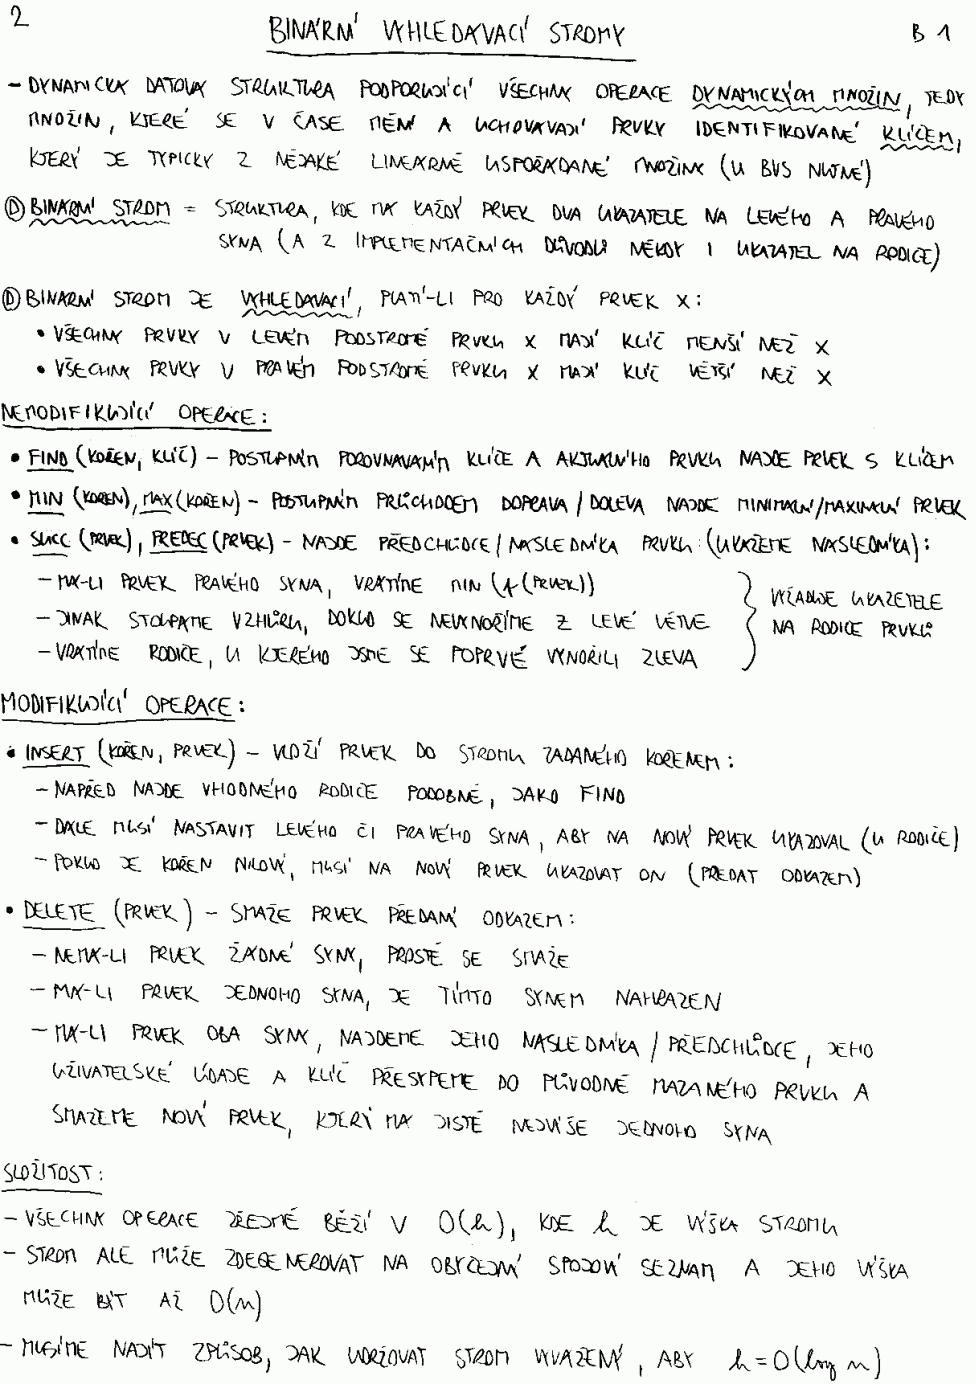 2
BINÁRNÍ VYHLEDÁVACÍ STROMY
B 1
- DYNAMICKÁ DATOVÁ STRUKTURA PODPORUJÍCÍ VŠECHNY OPERACE DYNAMICKÝCH MNOŽIN, TEDY
MNOŽIN, KTERÉ SE V ČASE MĚNÍ A UCHOVÁVAJÍ PRVKY IDENTIFIKOVANÉ KLÍČEM,
KTERÝ JE TYPICKY Z NĚJAKÉ LINEÁRNĚ USPOŘÁDANÉ MNOŽINY (U BVS NUTNĚ)
Ⓓ BINÁRNÍ STROM = STRUKTURA, KDE MÁ KAŽDÝ PRVEK DVA UKAZATELE NA LEVÉHO A PRAVÉHO
SYNA (A Z IMPLEMENTAČNÍCH DŮVODŮ NĚKDY I UKAZATEL NA RODIČE)
Ⓓ BINÁRNÍ STROM JE VYHLEDÁVACÍ, PLATÍ-LI PRO KAŽDÝ PRVEK X:
• VŠECHNY PRVKY V LEVÉM PODSTROMĚ PRVKU X MAJÍ KLÍČ MENŠÍ NEŽ X
• VŠECHNY PRVKY V PRAVÉM PODSTROMĚ PRVKU X MAJÍ KLÍČ VĚTŠÍ NEŽ X
NEMODIFIKUJÍCÍ OPERACE:
• FIND (KOŘEN, KLÍČ) - POSTUPNÝM POROVNÁVÁNÍM KLÍČE A AKTUÁLNÍHO PRVKU NAJDE PRVEK S KLÍČEM
• MIN (KOŘEN), MAX (KOŘEN) - POSTUPNÝM PRŮCHODEM DOPRAVA / DOLEVA NAJDE MINIMÁLNÍ/MAXIMÁLNÍ PRVEK
• SUCC (PRVEK), PREDEC (PRVEK) - NAJDE PŘEDCHŮDCE / NÁSLEDNÍKA PRVKU (UKÁŽEME NÁSLEDNÍKA):
- MÁ-LI PRVEK PRAVÉHO SYNA, VRÁTÍME MIN (r(PRVEK))
- JINAK STOUPÁME VZHŮRU, DOKUD SE NEVYNOŘÍME Z LEVÉ VĚTVE
- VRÁTÍME RODIČE, U KTERÉHO JSME SE POPRVÉ VYNOŘILI ZLEVA
VYŽADUJE UKAZETELE
NA RODIČE PRVKŮ
MODIFIKUJÍCÍ OPERACE:
• INSERT (KOŘEN, PRVEK) - VLOŽÍ PRVEK DO STROMU ZADANÉHO KOŘENEM:
- NAPŘED NAJDE VHODNÉHO RODIČE PODOBNĚ, JAKO FIND
- DÁLE MUSÍ NASTAVIT LEVÉHO ČI PRAVÉHO SYNA, ABY NA NOVÝ PRVEK UKAZOVAL (U RODIČE)
- POKUD JE KOŘEN NILOVÝ, MUSÍ NA NOVÝ PRVEK UKAZOVAT ON (PŘEDAT ODKAZEM)
• DELETE (PRVEK) - SMAŽE PRVEK PŘEDANÝ ODKAZEM:
- NEMÁ-LI PRVEK ŽÁDNÉ SYNY, PROSTĚ SE SMAŽE
- MÁ-LI PRVEK JEDNOHO SYNA, JE TÍMTO SYNEM NAHRAZEN
- MÁ-LI PRVEK OBA SYNY, NAJDEME JEHO NÁSLEDNÍKA / PŘEDCHŮDCE, JEHO
UŽIVATELSKÉ ÚDAJE A KLÍČ PŘESYPEME DO PŮVODNĚ MAZANÉHO PRVKU A
SMAŽEME NOVÝ PRVEK, KTERÝ MÁ JISTĚ NEJVÝŠE JEDNOHO SYNA
SLOŽITOST:
- VŠECHNY OPERACE ZŘEJMĚ BĚŽÍ V O(h), KDE h JE VÝŠKA STROMU
- STROM ALE MŮŽE ZDEGENEROVAT NA OBYČEJNÝ SPOJOVÝ SEZNAM A JEHO VÝŠKA
MŮŽE BÝT AŽ O(n)
- MUSÍME NAJÍT ZPŮSOB, JAK UDRŽOVAT STROM VYVÁŽENÝ, ABY h = O(log n)